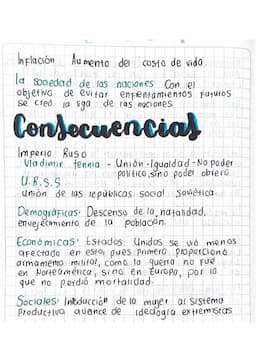 Inflación Aumento del costo de vida
la sociedad de las naciones Con el
objetivo de evitar enfrentamientos futuros
se creó la liga de las naciones
Consecuencias
Imperio Ruso
Vladimir - Unión - Igualdad - No poder
político, sino poder obrero.
U.R.S.S
unión de las repúblicas social Soviética
Demográficas: Descenso de la natalidad,
envejecimiento de la población.
Económicas: Estados Unidos se vió menos
afectado en esto, pues primero proporcionó
armamento militar, como la guerra no fue
en Norteamérica, sino en Europa, por lo
que no perdió mortalidad.
Sociales: Introducción de la mujer al sistema
Productivo avance de ideología extremistas